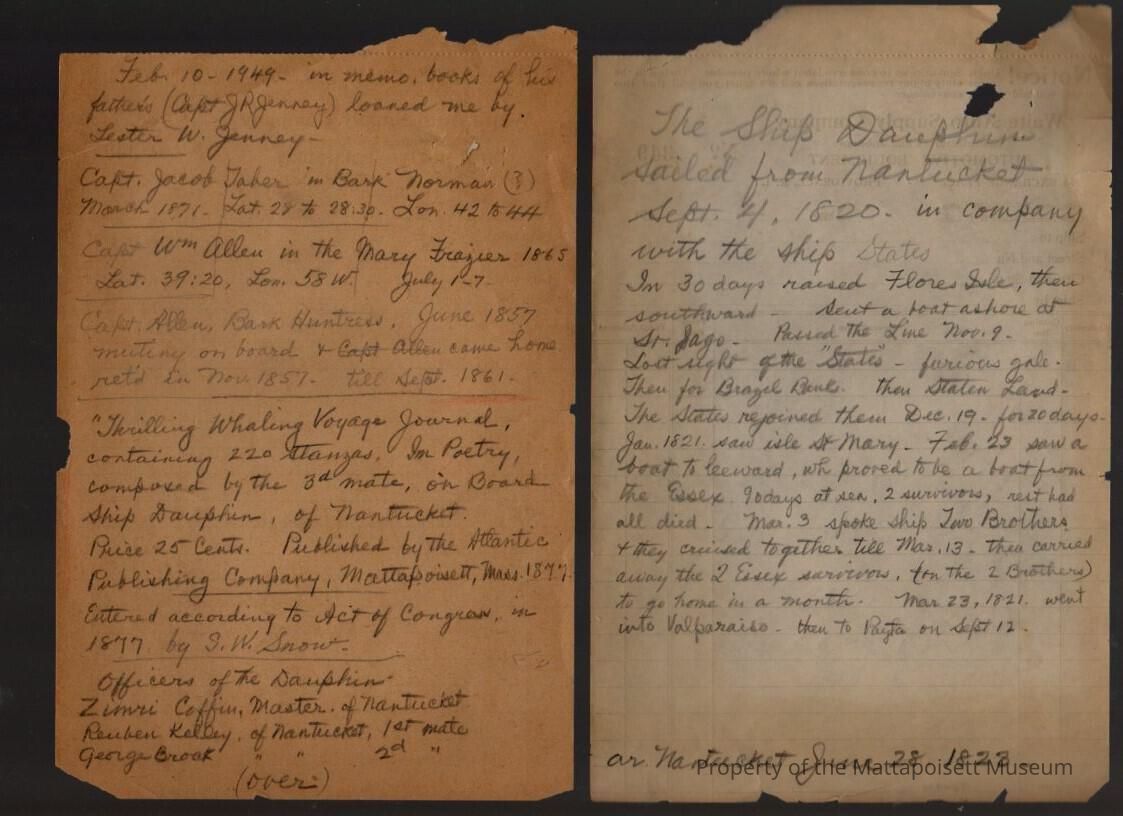 Feb. 10 - 1949 - in memo. books of his
father's (Capt JR Jenney) loaned me by
Lester W. Jenney -
Capt. Jacob Taber in Bark Norman (3)
March 1871. Lat. 28 to 28:30. Lon. 42 to 44
Capt Wm Allen in the Mary Frazier 1865
Lat. 39:20, Lon. 58 W. July 1-7.
Capt. Allen, Bark Huntress, June 1857
mutiny on board & Capt Allen came home
ret'd in Nov. 1857. till Sept. 1861.
"Thrilling Whaling Voyage Journal,
containing 220 Stanzas, In Poetry,
composed by the 3d mate, on Board
Ship Dauphin, of Nantucket.
Price 25 Cents. Published by the Atlantic
Publishing Company, Mattapoisett, Mass. 1877.
Entered according to Act of Congress, in
1877 by S. W. Snow.
Officers of the Dauphin -
Zimri Coffin, Master. of Nantucket
Reuben Kelley, of Nantucket, 1st mate
George Brook " " 2d "
(over)
The Ship Dauphin
sailed from Nantucket
Sept. 4, 1820. in company
with the ship States
In 30 days raised Flores Isle, then
southward - Sent a boat ashore at
St. Jago - Passed the Line Nov. 9.
Lost sight of the "States" - furious gale.
Then for Brazel Bank. then Staten Land -
The States rejoined them Dec. 19 - for 20 days -
Jan. 1821. saw isle St Mary - Feb. 23 saw a
boat to leeward, wh proved to be a boat from
the Essex. 90 days at sea, 2 survivors, rest had
all died - Mar. 3 spoke ship Two Brothers
& they cruised together till Mar. 13 - then carried
away the 2 Essex survivors, (on the 2 Brothers)
to go home in a month. Mar 23, 1821. went
into Valparaiso - then to Payta on Sept 12.
ar. Nantucket 28 182
Property of the Mattapoisett Museum